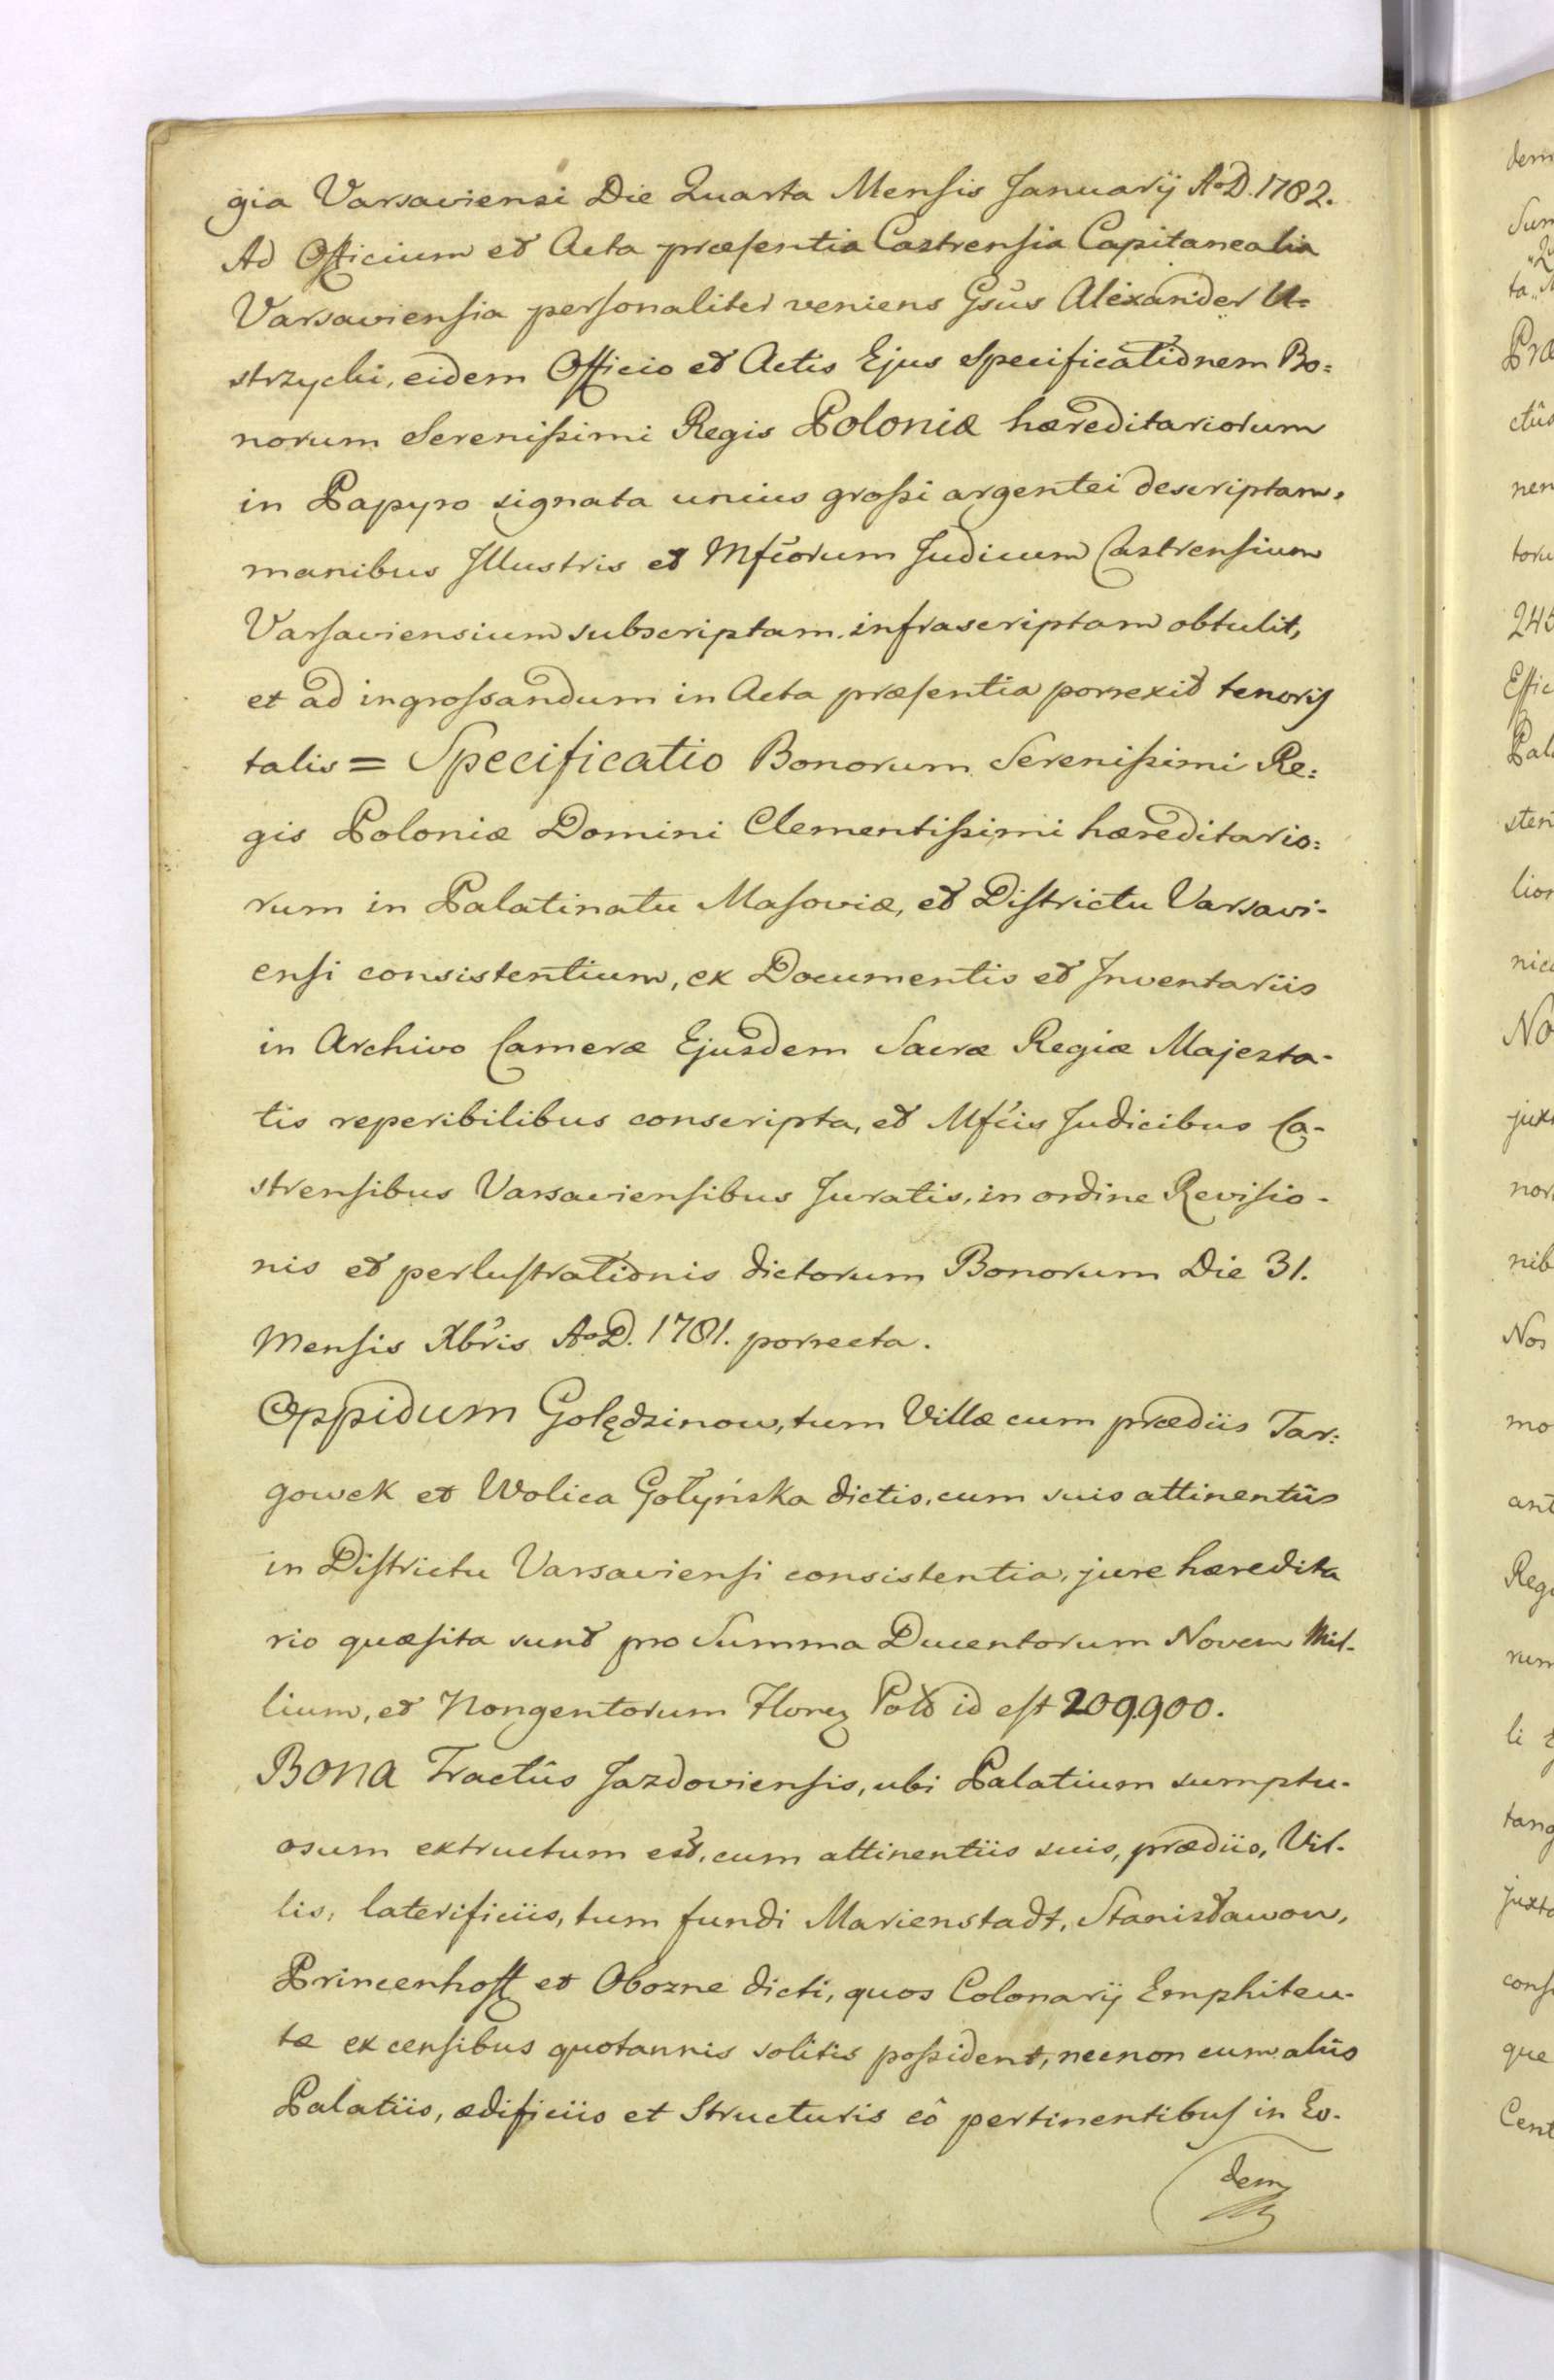 gia Varsaviensi Die Quarta Mensis Januarij A°D. 1782.
Ad Officium et Acta præsentia Castrensia Capitanealia
Varsaviensia personaliter veniens Gsûs Alexander U=
strzycki, eidem Officio et Actis Ejus Specificationem Bo=
norum Serenissimi Regis Poloniæ hæreditariorum
in Papyro signata unius grossi argentei descriptam,
manibus Illustris et Mfcorum Judicum Castrensium
Varsaviensium subscriptam infrascriptam obtulit,
et ad ingrossandum in Acta præsentia porrexit tenoris
talis = Specificatio Bonorum Serenissimi Re=
gis Poloniæ Domini Clementissimi hæreditario=
rum in Palatinatu Masoviæ, et Districtu Varsavi-
ensi consistentium, ex Documentis et Inventariis
in Archivo Cameræ Ejusdem Sacræ Regiæ Majesta-
tis reperibilibus conscripta, et Mfcis Judicibus Ca-
strensibus Varsaviensibus Juratis, in ordine Revisio-
nis et perlustrationis dictorum Bonorum Die 31.
Mensis Xbris A°D. 1781. porrecta.
Oppidum Golędzinow, tum Villæ cum prædiis Tar=
gowek et Wolica Gołyńska dictis, cum suis attinentiis
in Districtu Varsaviensi consistentia, jure hæredita
rio quæsita sunt pro Summa Ducentorum Novem Mil-
lium, et Nongentorum Floren Pold id est 209.900.
Bona Tractûs Jazdoviensis, ubi Palatium sumptu-
osum extructum est, cum attinentiis suis, prædiis, Vil-
lis, laterificiis, tum fundi Marienstadt, Stanisławow,
Princenhoff et Obozne dicti, quos Colonarij Emphiteu-
tæ ex censibus quotannis solitis possident, necnon cum aliis
Palatiis, ædificiis et Structuris eô pertinentibus in Eo-
dem